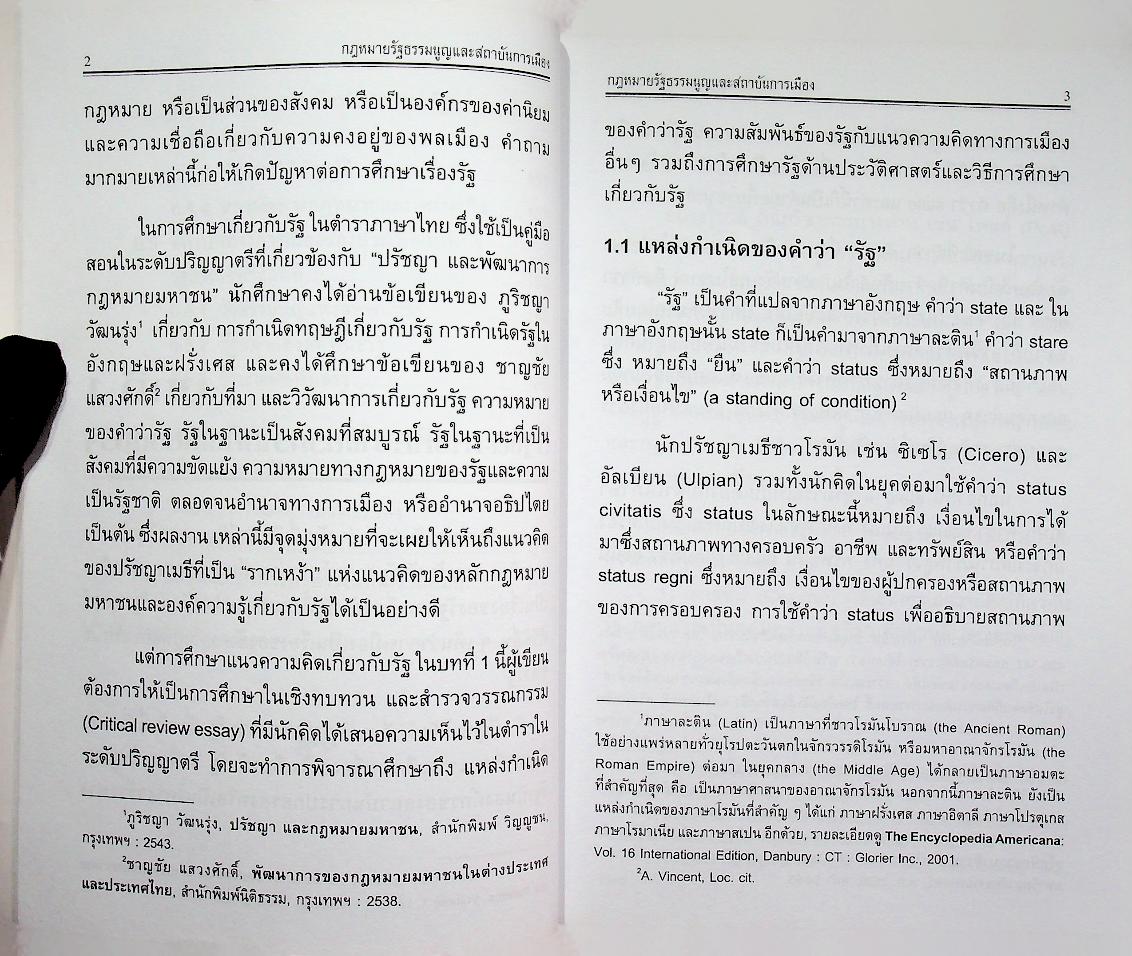 2
กฎหมายรัฐธรรมนูญและสถาบันการเมือง
กฎหมาย หรือเป็นส่วนของสังคม หรือเป็นองค์กรของค่านิยม
และความเชื่อถือเกี่ยวกับความคงอยู่ของพลเมือง คำถาม
มากมายเหล่านี้ก่อให้เกิดปัญหาต่อการศึกษาเรื่องรัฐ
ในการศึกษาเกี่ยวกับรัฐ ในตำราภาษาไทย ซึ่งใช้เป็นคู่มือ
สอนในระดับปริญญาตรีที่เกี่ยวข้องกับ “ปรัชญา และพัฒนาการ
กฎหมายมหาชน” นักศึกษาคงได้อ่านข้อเขียนของ ภูริชญา
วัฒนรุ่ง¹ เกี่ยวกับ การกำเนิดทฤษฎีเกี่ยวกับรัฐ การกำเนิดรัฐใน
อังกฤษและฝรั่งเศส และคงได้ศึกษาข้อเขียนของ ชาญชัย
แสวงศักดิ์² เกี่ยวกับที่มา และวิวัฒนาการเกี่ยวกับรัฐ ความหมาย
ของคำว่ารัฐ รัฐในฐานะเป็นสังคมที่สมบูรณ์ รัฐในฐานะที่เป็น
สังคมที่มีความขัดแย้ง ความหมายทางกฎหมายของรัฐและความ
เป็นรัฐชาติ ตลอดจนอำนาจทางการเมือง หรืออำนาจอธิปไตย
เป็นต้น ซึ่งผลงาน เหล่านี้มีจุดมุ่งหมายที่จะเผยให้เห็นถึงแนวคิด
ของปรัชญาเมธีที่เป็น “รากเหง้า” แห่งแนวคิดของหลักกฎหมาย
มหาชนและองค์ความรู้เกี่ยวกับรัฐได้เป็นอย่างดี
แต่การศึกษาแนวความคิดเกี่ยวกับรัฐ ในบทที่ 1 นี้ผู้เขียน
ต้องการให้เป็นการศึกษาในเชิงทบทวน และสำรวจวรรณกรรม
(Critical review essay) ที่มีนักคิดได้เสนอความเห็นไว้ในตำราใน
ระดับปริญญาตรี โดยจะทำการพิจารณาศึกษาถึง แหล่งกำเนิด
¹ภูริชญา วัฒนรุ่ง, ปรัชญา และกฎหมายมหาชน, สำนักพิมพ์ วิญญูชน,
กรุงเทพฯ : 2543.
²ชาญชัย แสวงศักดิ์, พัฒนาการของกฎหมายมหาชนในต่างประเทศ
และประเทศไทย, สำนักพิมพ์นิติธรรม, กรุงเทพฯ : 2538.
กฎหมายรัฐธรรมนูญและสถาบันการเมือง
3
ของคำว่ารัฐ ความสัมพันธ์ของรัฐกับแนวความคิดทางการเมือง
อื่นๆ รวมถึงการศึกษารัฐด้านประวัติศาสตร์และวิธีการศึกษา
เกี่ยวกับรัฐ
1.1 แหล่งกำเนิดของคำว่า “รัฐ”
“รัฐ” เป็นคำที่แปลจากภาษาอังกฤษ คำว่า state และ ใน
ภาษาอังกฤษนั้น state ก็เป็นคำมาจากภาษาละติน¹ คำว่า stare
ซึ่ง หมายถึง “ยืน” และคำว่า status ซึ่งหมายถึง “สถานภาพ
หรือเงื่อนไข” (a standing of condition) ²
นักปรัชญาเมธีชาวโรมัน เช่น ซิเซโร (Cicero) และ
อัลเบียน (Ulpian) รวมทั้งนักคิดในยุคต่อมาใช้คำว่า status
civitatis ซึ่ง status ในลักษณะนี้หมายถึง เงื่อนไขในการได้
มาซึ่งสถานภาพทางครอบครัว อาชีพ และทรัพย์สิน หรือคำว่า
status regni ซึ่งหมายถึง เงื่อนไขของผู้ปกครองหรือสถานภาพ
ของการครอบครอง การใช้คำว่า status เพื่ออธิบายสถานภาพ
¹ภาษาละติน (Latin) เป็นภาษาที่ชาวโรมันโบราณ (the Ancient Roman)
ใช้อย่างแพร่หลายทั่วยุโรปตะวันตกในจักรวรรดิโรมัน หรือมหาอาณาจักรโรมัน (the
Roman Empire) ต่อมา ในยุคกลาง (the Middle Age) ได้กลายเป็นภาษาอมตะ
ที่สำคัญที่สุด คือ เป็นภาษาศาสนาของอาณาจักรโรมัน นอกจากนี้ภาษาละติน ยังเป็น
แหล่งกำเนิดของภาษาโรมันที่สำคัญ ๆ ได้แก่ ภาษาฝรั่งเศส ภาษาอิตาลี ภาษาโปรตุเกส
ภาษาโรมาเนีย และภาษาสเปน อีกด้วย, รายละเอียดดู The Encyclopedia Americana:
Vol. 16 International Edition, Danbury : CT : Glorier Inc., 2001.
²A. Vincent, Loc. cit.